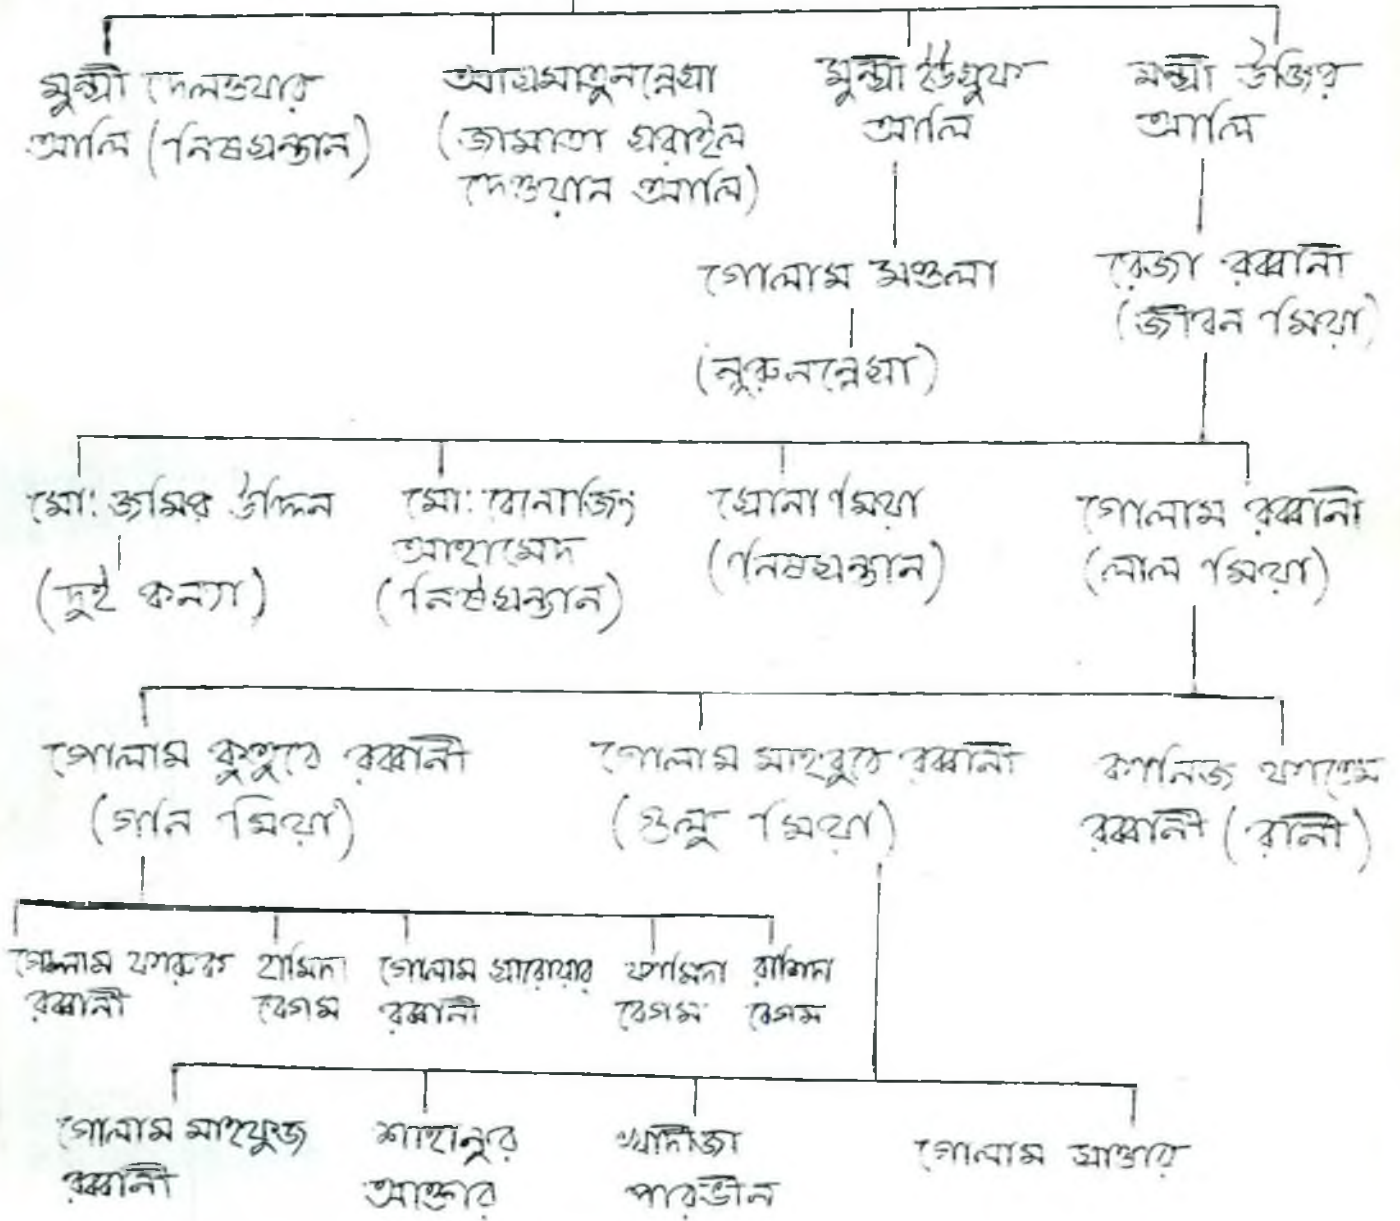 মুন্সী দেলওয়ার
আলি (নিষসন্তান)
আসমাতুননেসা
(জামাতা সরাইল
দেওয়ান আলি)
মুন্সী ইউসুফ
আলি
মন্সী উজির
আলি
গোলাম মওলা
(নুরুননেসা)
রেজা রব্বানী
(জীবন মিয়া)
মো: জমির উদ্দিন
(দুই কন্যা)
মো: বেনাজির
আহামেদ
(নিষসন্তান)
সোনা মিয়া
(নিষসন্তান)
গোলাম রব্বানী
(লাল মিয়া)
গোলাম কুতুবে রব্বানী
(গনি মিয়া)
গোলাম মাহবুবে রব্বানী
(গুলু মিয়া)
কানিজ ফাতেম
রব্বানী (রানী)
গোলাম ফারুক
রব্বানী
হামিদা
বেগম
গোলাম সারোয়ার
রব্বানী
ফামিদা
বেগম
রাশিদা
বেগম
গোলাম মাহফুজ
রব্বানী
শাহানুর
আক্তার
খাদীজা
পারভীন
গোলাম সাত্তার